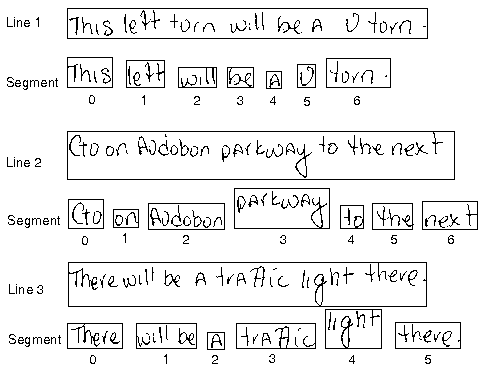 Line 1 This left turn will be A U turn.
Segment This left will be A U turn.
0 1 2 3 4 5 6
Line 2 Go on Audobon parkway to the next
Segment Go on Audobon parkway to the next
0 1 2 3 4 5 6
Line 3 There will be A traffic light there.
Segment There will be A traffic light there.
0 1 2 3 4 5